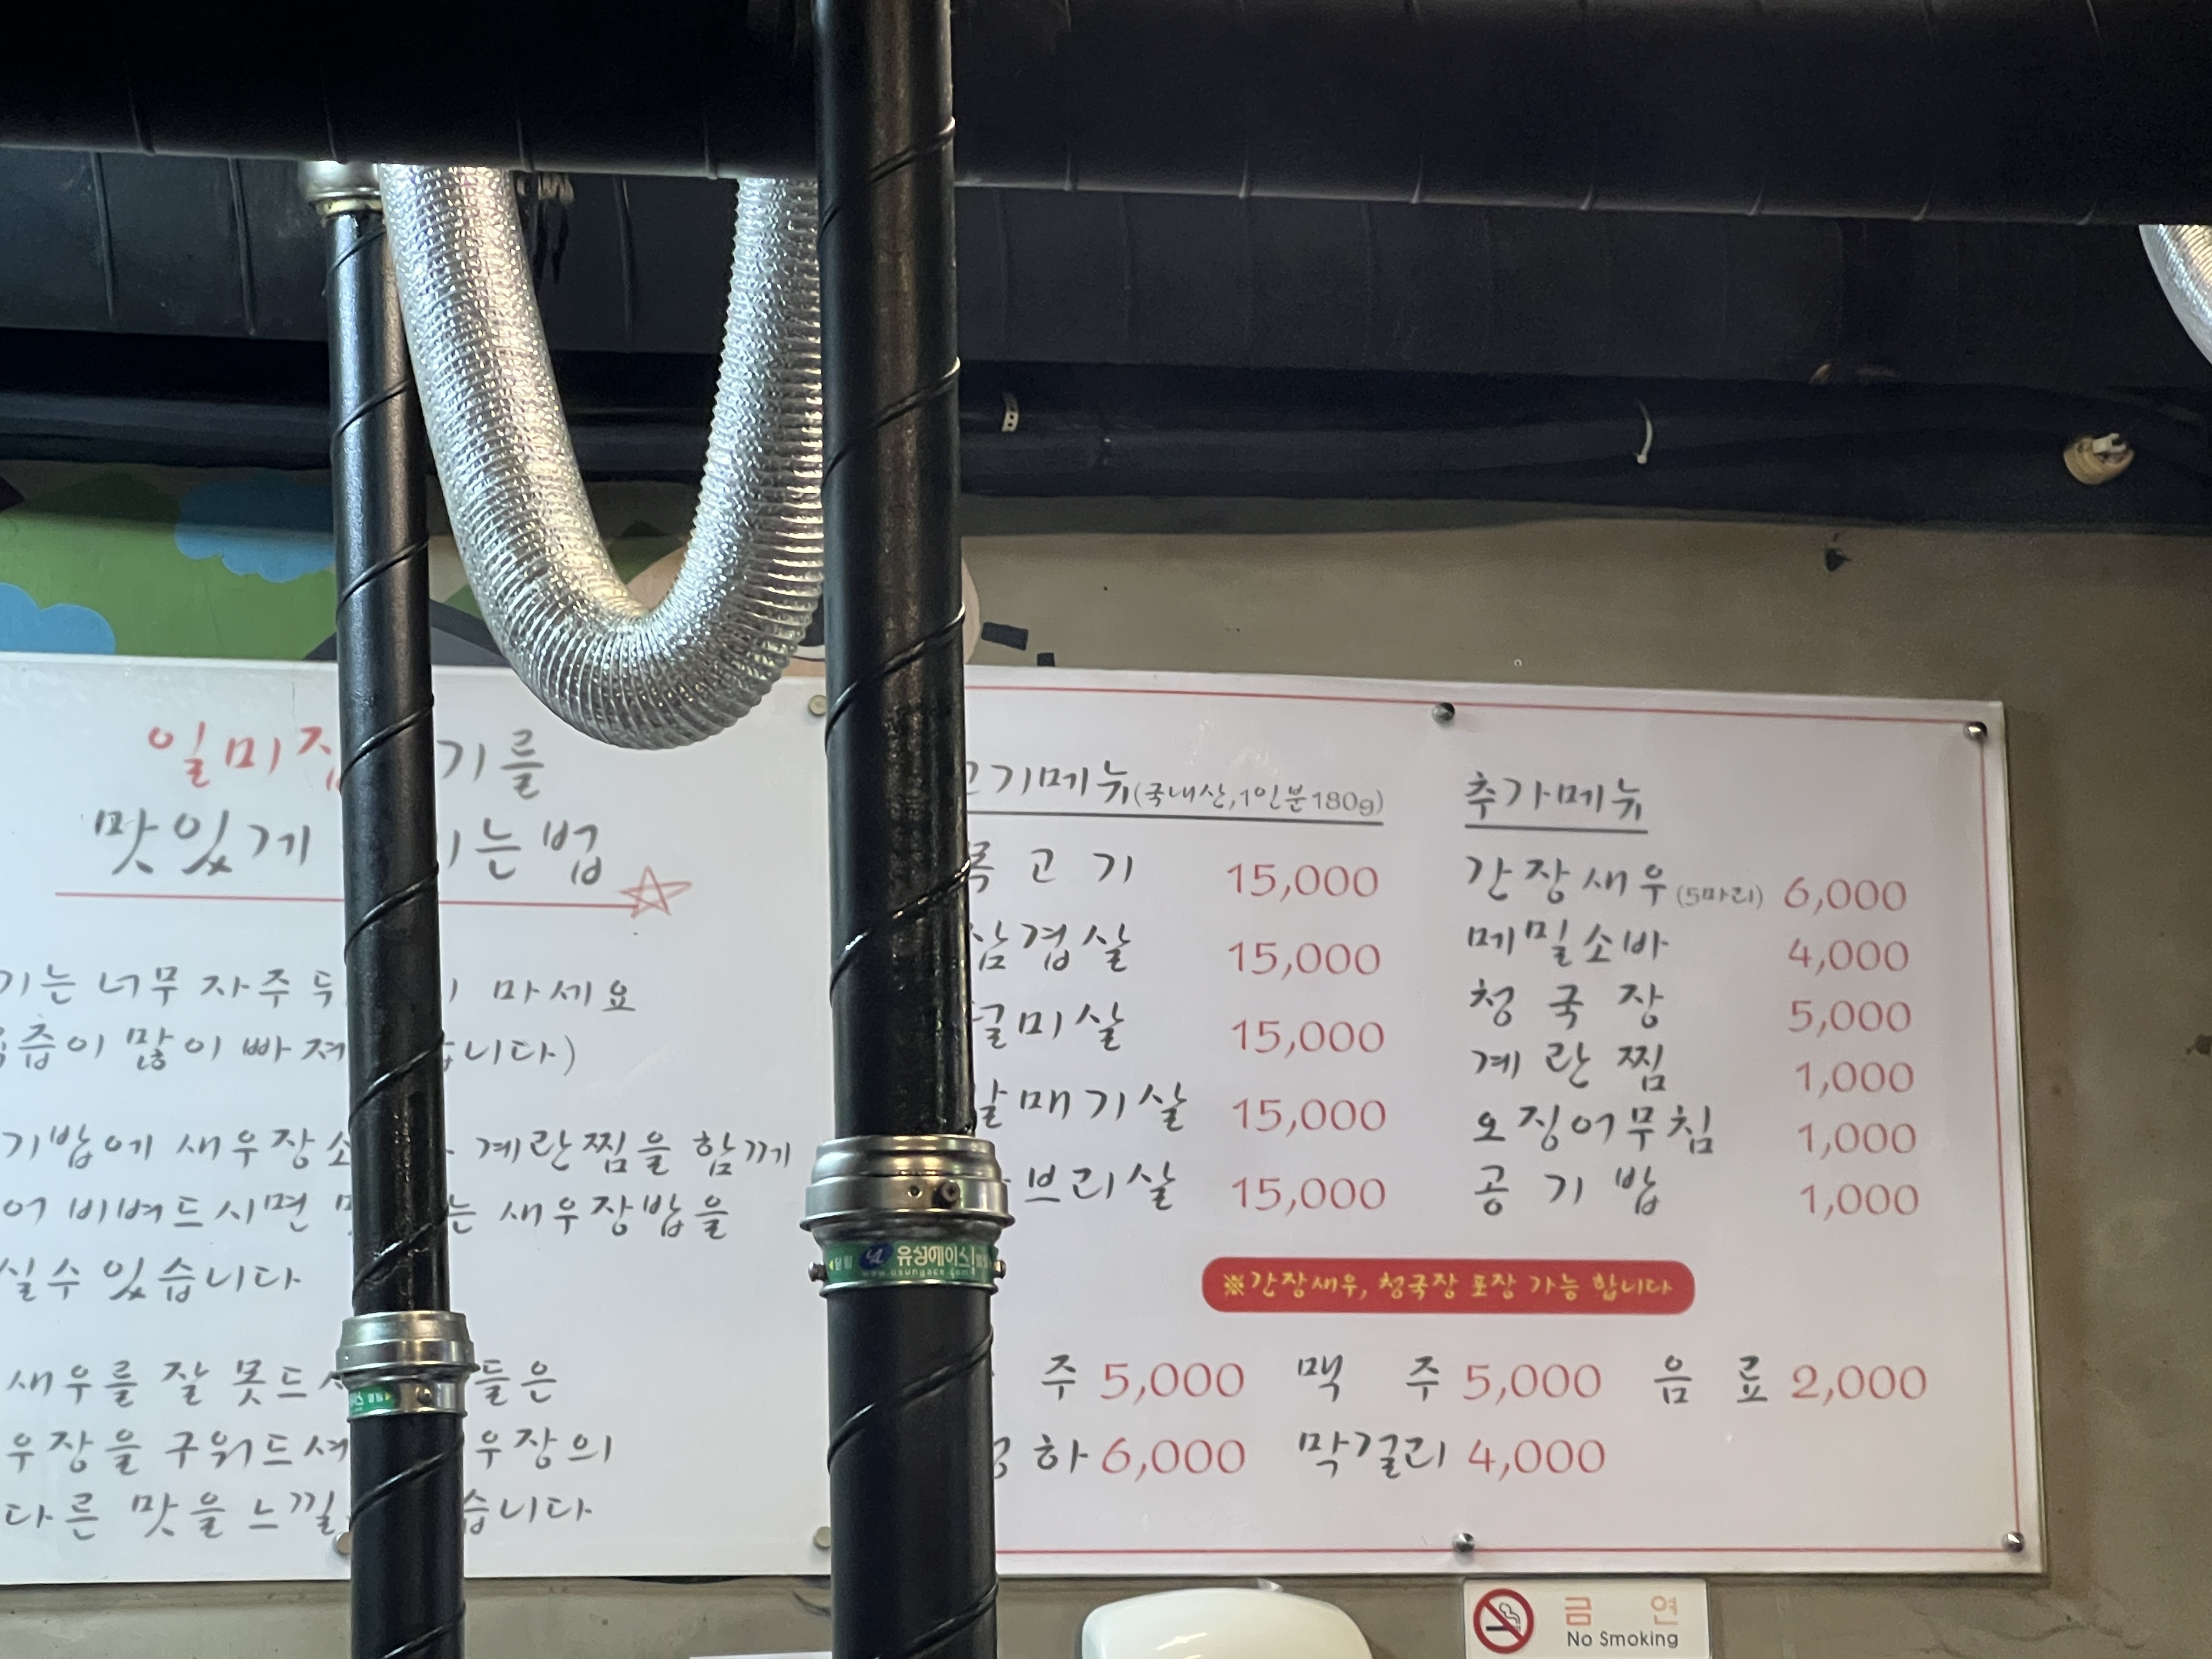 일미집 기를
맛있게 는법
기는 너무 자주 마세요
즙이 많이 빠져 습니다)
기밥에 새우장소 계란찜을 함께
어 비벼드시면 는 새우장밥을
실수 있습니다
새우를 잘 못드시 들은
우장을 구워드셔 우장의
다른 맛을 느낄 습니다
고기메뉴(국내산,1인분180g)
목 고 기 15,000
삼겹살 15,000
미살 15,000
갈매기살 15,000
브리살 15,000
추가메뉴
간장새우(5마리) 6,000
메밀소바 4,000
청 국 장 5,000
계 란 찜 1,000
오징어무침 1,000
공 기 밥 1,000
※간장새우, 청국장 포장 가능 합니다
주 5,000 맥 주 5,000 음 료 2,000
하 6,000 막걸리 4,000
유성에이스
www.usungace.com
열림
금 연
No Smoking